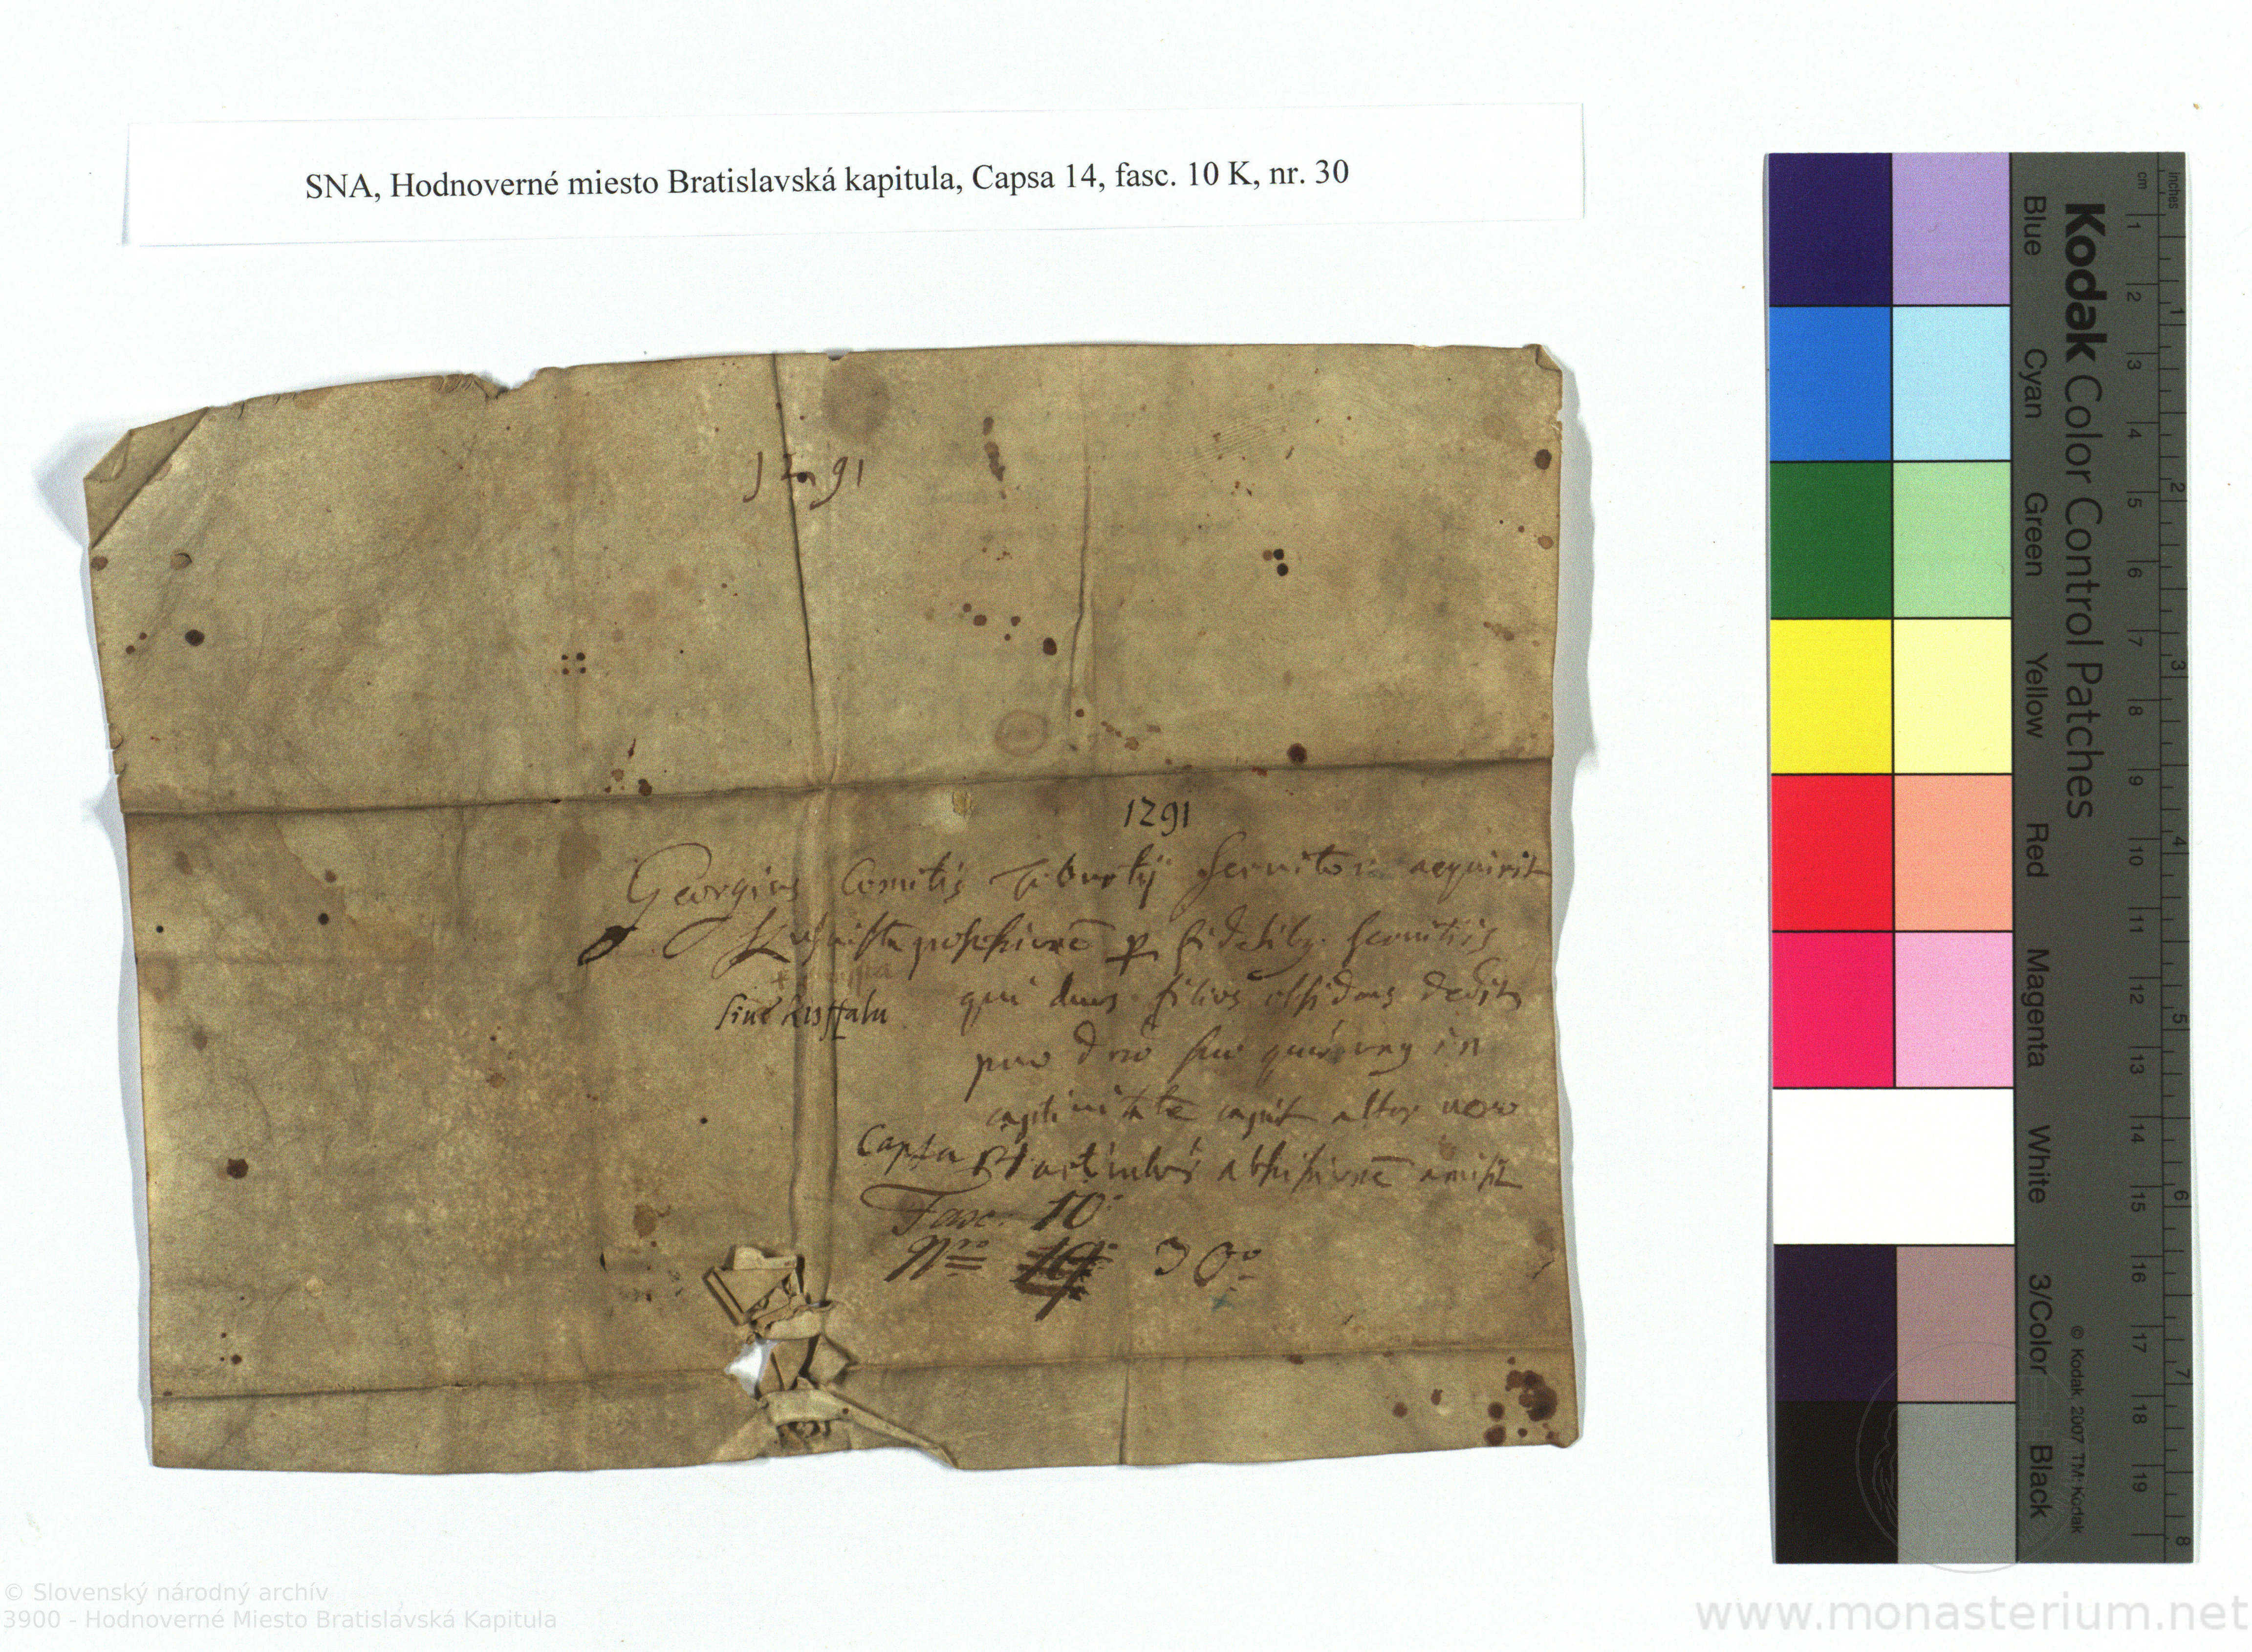 SNA, Hodnoverné miesto Bratislavská kapitula, Capsa 14, fasc. 10 K, nr. 30
1291
1291
Georgius Comitis Tiburtij Servitor acquirit
possessionē p fidelib. servitiis
sive Kisffalu
qui duos filios obsides dedit
pro dno suo quorum unus in
captivitatē alter vero
Capsa
amisit
Fasc. 10
Nro 30
Kodak Color Control Patches
Blue Cyan Green Yellow Red Magenta White 3/Color Black
cm 1 2 3 4 5 6 7 8 9 10 11 12 13 14 15 16 17 18 19
inches 1 2 3 4 5 6 7 8
© Kodak, 2007 TM: Kodak
© Slovenský národný archív
3900 - Hodnoverné Miesto Bratislavská Kapitula
www.monasterium.net